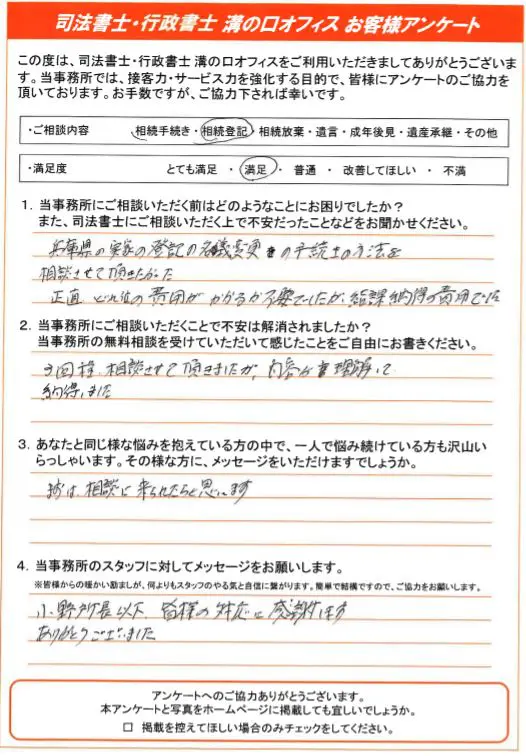 司法書士・行政書士 溝の口オフィス お客様アンケート
この度は、司法書士・行政書士 溝の口オフィスをご利用いただきましてありがとうございま
す。当事務所では、接客力・サービス力を強化する目的で、皆様にアンケートのご協力を
頂いております。お手数ですが、ご協力下されば幸いです。
・ご相談内容 相続手続き・相続登記・相続放棄・遺言・成年後見・遺産承継・その他
・満足度 とても満足 ・ 満足 ・ 普通 ・ 改善してほしい ・ 不満
1. 当事務所にご相談いただく前はどのようなことにお困りでしたか?
また、司法書士にご相談いただく上で不安だったことなどをお聞かせください。
兵庫県の実家の登記の名義変更の手続きの方法を
相談させて頂きたかった
正直 どれ位の費用がかかるか不安でしたが、結課納得の費用でした
2. 当事務所にご相談いただくことで不安は解消されましたか?
当事務所の無料相談を受けていただいて感じたことをご自由にお書きください。
3回程、相談させて頂きましたが、内容が理解して
納得しました
3. あなたと同じ様な悩みを抱えている方の中で、一人で悩み続けている方も沢山い
らっしゃいます。その様な方に、メッセージをいただけますでしょうか。
まずは、相談に来られたらと思います
4. 当事務所のスタッフに対してメッセージをお願いします。
※皆様からの暖かい励ましが、何よりもスタッフのやる気と自信に繋がります。簡単で結構ですので、ご協力をお願いします。
小野所長以下、皆様の対応に感謝します
ありがとうございました
アンケートへのご協力ありがとうございます。
本アンケートと写真をホームページに掲載しても宜しいでしょうか。
□ 掲載を控えてほしい場合のみチェックをしてください。